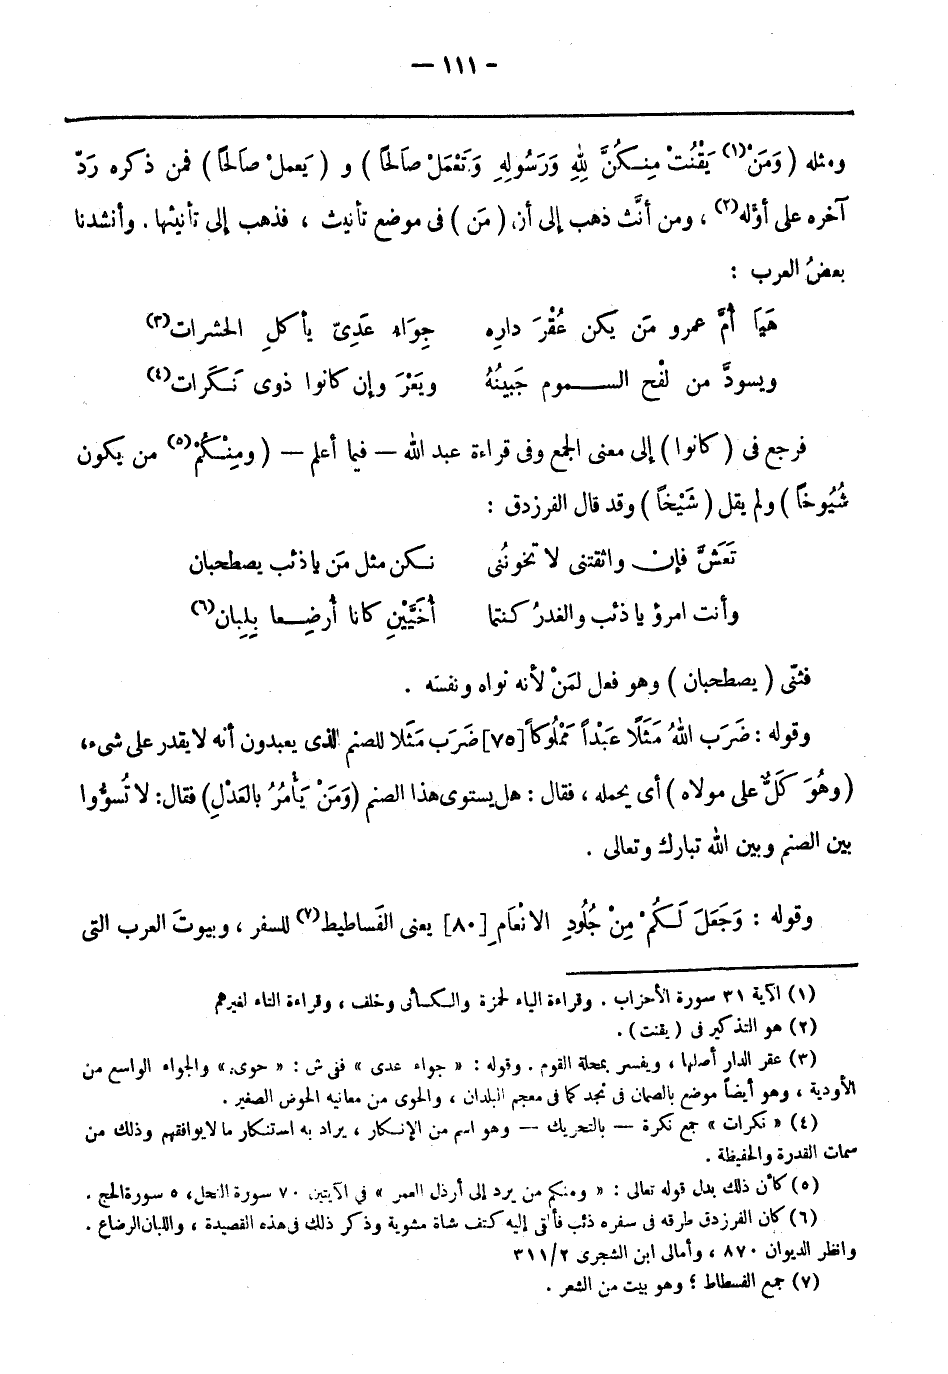 - ١١١ -
ومثله ( وَمَنْ(١) يَقْنُتْ مِنكُنَّ لِلهِ وَرَسُولِهِ وَتَعْمَلْ صَالحًا ) و ( يَعملْ صالحًا ) فمن ذكره رَدّ
آخره على أوّله(٢) ، ومن أنَّث ذهب إلى أن ( مَن ) فى موضع تأنيث ، فذهب إلى تأنيثها . وأنشدنا
بعضُ العرب :
هَيَا أُمَّ عمرو مَن يكن عُقْرَ دارِه جِوَاء عَدِىّ يأكلِ الحشرات(٣)
ويسودَّ من لفْح السموم جَبينُهُ ويَعْرَ وإن كانوا ذوى نَكَرات(٤)
فرجع فى ( كانوا ) إلى معنى الجمع وفى قراءة عبد الله — فيما أعلم — ( ومِنْكُمْ(٥) من يكون
شُيُوخاً ) ولم يقل ( شَيْخاً ) وقد قال الفرزدق :
تَعَشَّ فإن واثقتنى لا تخوننُى نكن مثل مَن ياذئب يصطحبان
وأنت امرؤ ياذئب والغدرُ كنتما أُخَيَّيْنِ كانا أُرضِعا بِلِبان(٦)
فثنّى ( يصطحبان ) وهو فعل لمَنْ لأنه نواه ونفسَه .
وقوله : ضَرَب اللهُ مَثَلًا عَبْداً مَمْلُوكاً [٧٥] ضَرَب مَثَلا للصنم الذى يعبدون أنه لا يقدر على شىء،
( وهُوَ كَلٌّ على مولاه ) أى يحمله ، فقال : هل يستوى هذا الصنم (وَمَنْ يَأْمُرُ بالعَدْلِ) فقال: لا تُسوُّوا
بين الصنم وبين الله تبارك وتعالى .
وقوله : وَجَعَلَ لَكُمْ مِنْ جُلُودِ الانْعَامِ [٨٠] يعنى الفَساطيط(٧) للسفر ، وبيوتَ العرب التى
(١) الآية ٣١ سورة الأحزاب . وقراءة الياء لحمزة والكسائى وخلف ، وقراءة التاء لغيرهم
(٢) هو التذكير فى ( يقنت) .
(٣) عقر الدار أصلها ، ويفسر بمحلة القوم . وقوله : « جواء عدى » فى ش : « حوى » والجواء الواسع من
الأودية ، وهو أيضاً موضع بالصمان فى نجد كما فى معجم البلدان ، والحوى من معانيه الحوض الصغير .
(٤) « نكرات » جمع نكرة — بالتحريك — وهو اسم من الإنكار ، يراد به استنكار ما لا يوافقهم وذلك من
سمات القدرة والحفيظة .
(٥) كأن ذلك بدل قوله تعالى : « ومنكم من يرد إلى أرذل العمر » فى الآيتين ٧٠ سورة النحل، ٥ سورة الحج .
(٦) كان الفرزدق طرقه فى سفره ذئب فألقى إليه كتف شاة مشوية وذكر ذلك فى هذه القصيدة ، واللبان الرضاع .
وانظر الديوان ٨٧٠ ، وأمالى ابن الشجرى ٢/٣١١
(٧) جمع الفسطاط ؛ وهو بيت من الشعر .